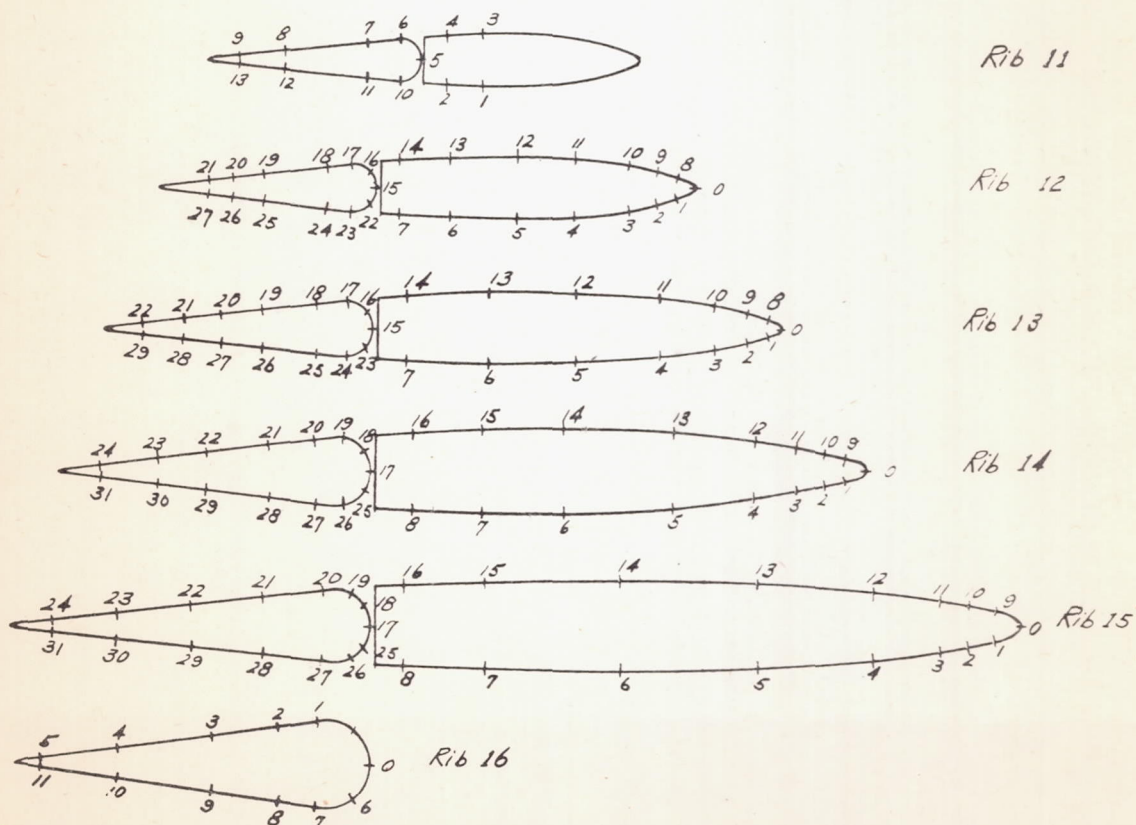 9 8 7 6 4 3
5
13 12 11 10 2 1
Rib 11
21 20 19 18 17 16 14 13 12 11 10 9 8
15 0
27 26 25 24 23 22 7 6 5 4 3 2 1
Rib 12
22 21 20 19 18 17 16 14 13 12 11 10 9 8
15 0
29 28 27 26 25 24 23 7 6 5 4 3 2 1
Rib 13
24 23 22 21 20 19 18 16 15 14 13 12 11 10 9
17 0
31 30 29 28 27 26 25 8 7 6 5 4 3 2 1
Rib 14
24 23 22 21 20 19 18 16 15 14 13 12 11 10 9
17 0
31 30 29 28 27 26 25 8 7 6 5 4 3 2 1
Rib 15
5 4 3 2 1
0
11 10 9 8 7 6
Rib 16